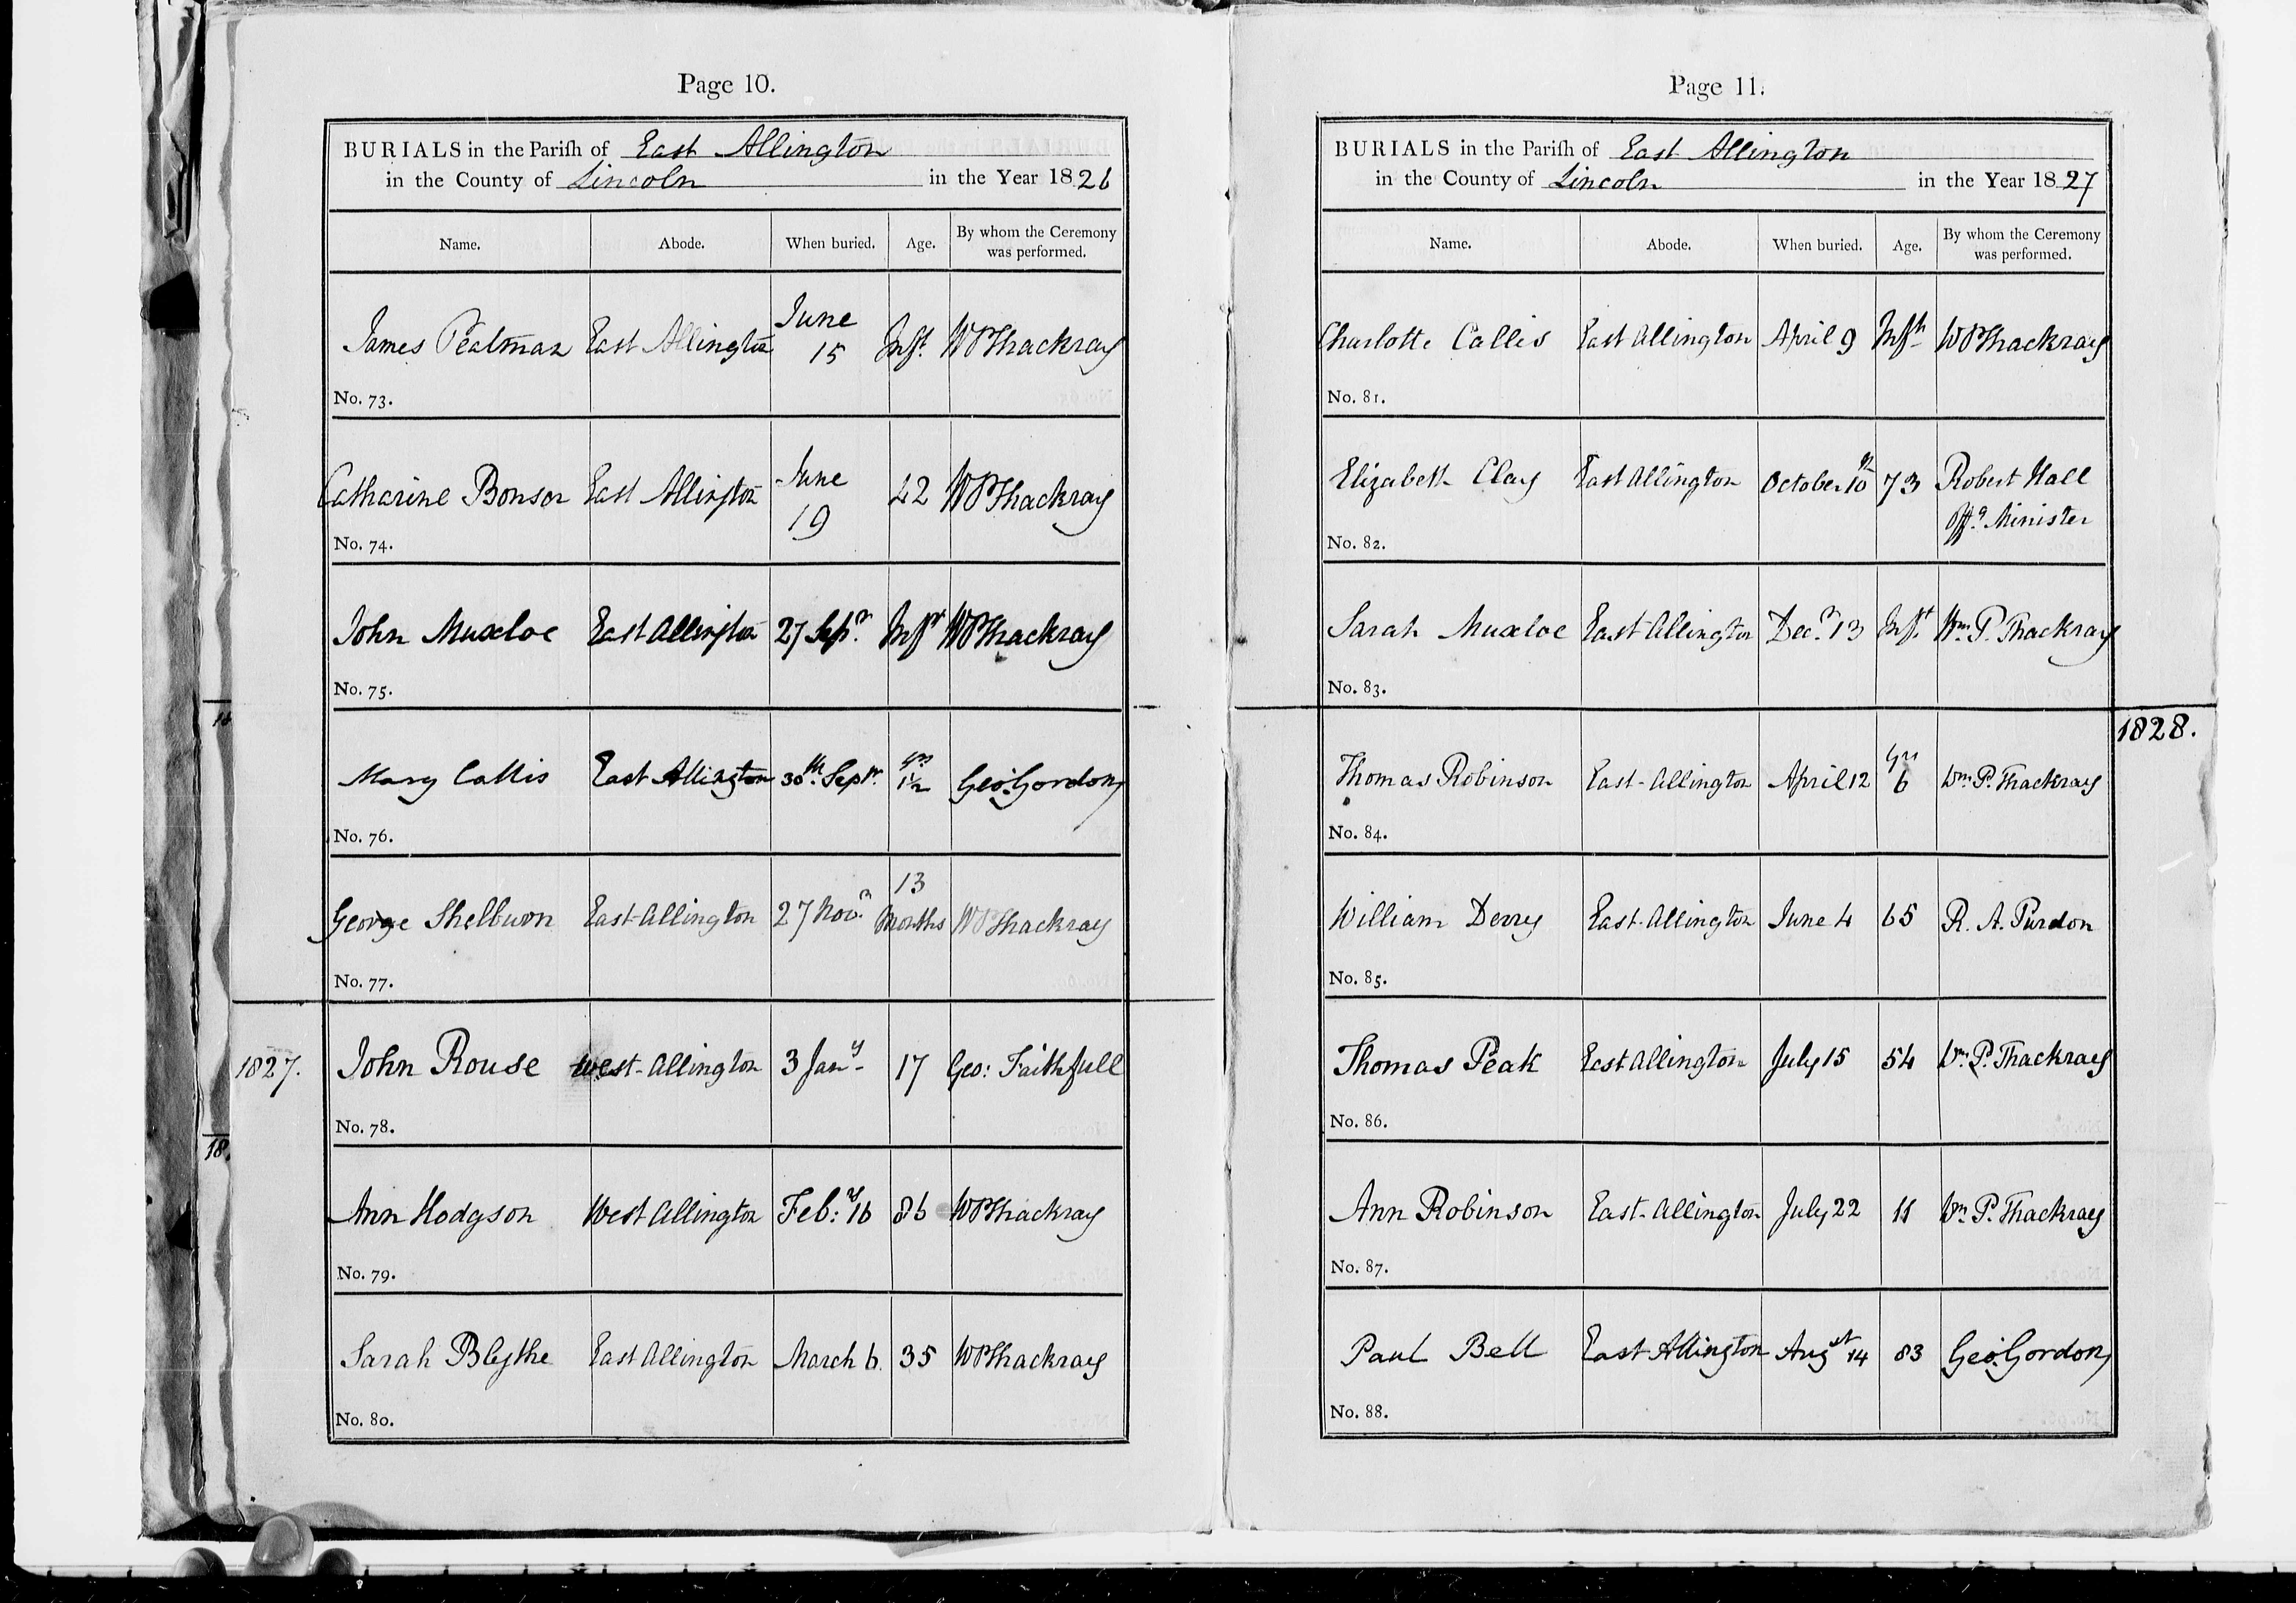 Page 10.
BURIALS in the Parish of East Allington
in the County of Lincoln in the Year 1826
Name. Abode. When buried. Age. By whom the Ceremony was performed.
James Pealman East Allington June 15 Inft. WPThackray
No. 73.
Catharine Bonsor East Allington June 19 22 WPThackray
No. 74.
John Muxloe East Allington 27 Sepr. Inft WPThackray
No. 75.
Mary Callis East Allington 30th. Sepr. yrs 1½ Geo: Gordon
No. 76.
George Shelburn East Allington 27 Novr. 13 Months WPThackray
No. 77.
1827. John Rouse West Allington 3 Jany. 17 Geo: Faithfull
No. 78.
Ann Hodgson West Allington Feb:y 16 86 WPThackray
No. 79.
Sarah Blythe East Allington March 6. 35 WPThackray
No. 80.
Page 11.
BURIALS in the Parish of East Allington
in the County of Lincoln in the Year 1827
Name. Abode. When buried. Age. By whom the Ceremony was performed.
Charlotte Callis East Allington April 9 Inft WPThackray
No. 81.
Elizabeth Clay East Allington October 10th 73 Robert Hall
Offg. Minister
No. 82.
Sarah Muxloe East Allington Decr. 13 Inft. Wm. P. Thackray
No. 83.
1828.
Thomas Robinson East Allington April 12 yrs 6 Wm. P. Thackray
No. 84.
William Derry East Allington June 4 65 R. A. Purdon
No. 85.
Thomas Peak East Allington July 15 54 Wm. P. Thackray
No. 86.
Ann Robinson East Allington July 22 11 Wm. P. Thackray
No. 87.
Paul Bell East Allington Augst 14 83 Geo: Gordon
No. 88.